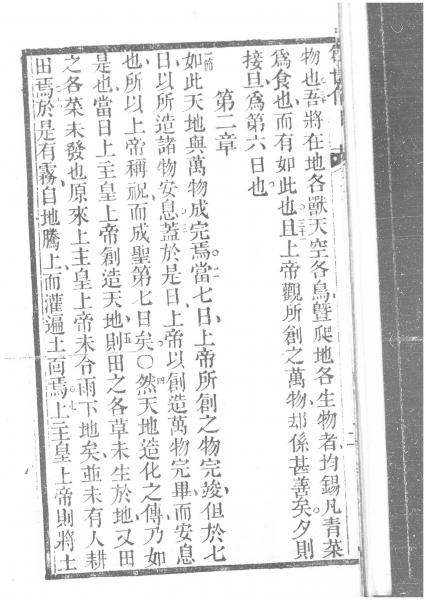 物也吾將在地各獸天空各鳥曁爬地各生物者均錫凡青菜
爲食也而有如此也且上帝觀所創之萬物却係甚善矣夕則
接旦爲第六日也
第二章
一節如此天地與萬物成完焉當七日上帝所創之物完竣但於七
日以所造諸物安息蓋於是日上帝以創造萬物完畢而安息
也所以上帝稱祝而成聖第七日矣○然天地造化之傳乃如
是也當日上主皇上帝創造天地則田之各草未生於地又田
之各菜未發也原來上主皇上帝未令雨下地矣並未有人耕
田焉於是有霧自地騰上而灌遍土面焉七上主皇上帝則將土